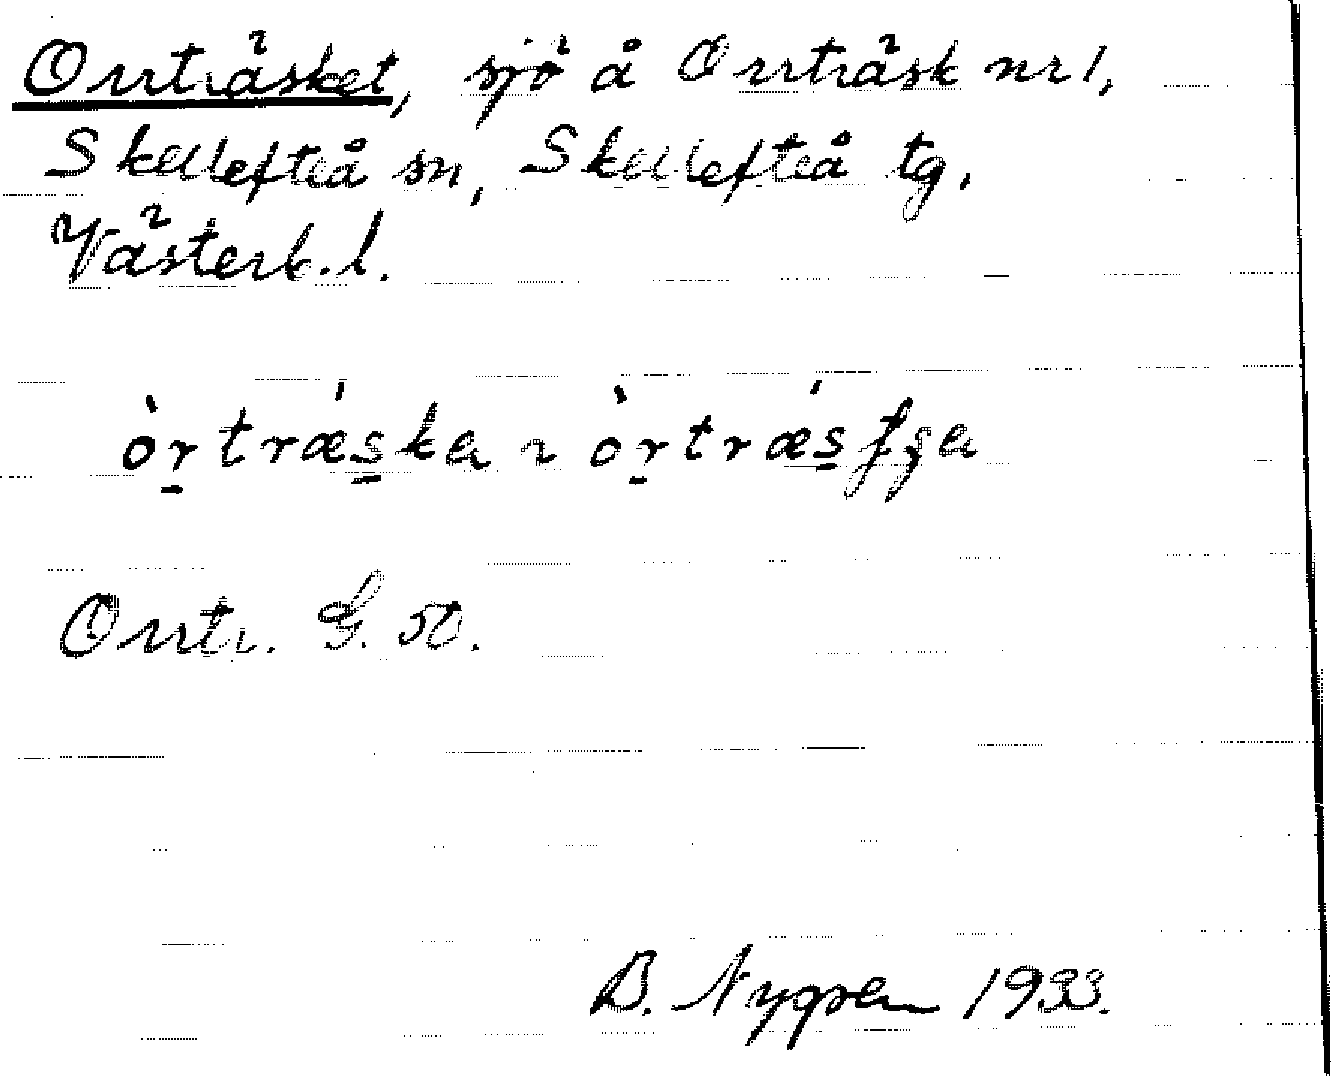 Orrträsket, sjö å Orrträsk nr 1,
Skellefteå sn, Skellefteå tg,
Västerb. l.
òṟtræ̍s̱ka ~ òṟtræ̍s̱
Orrtr. G. 50.
B. Nygren 1933.